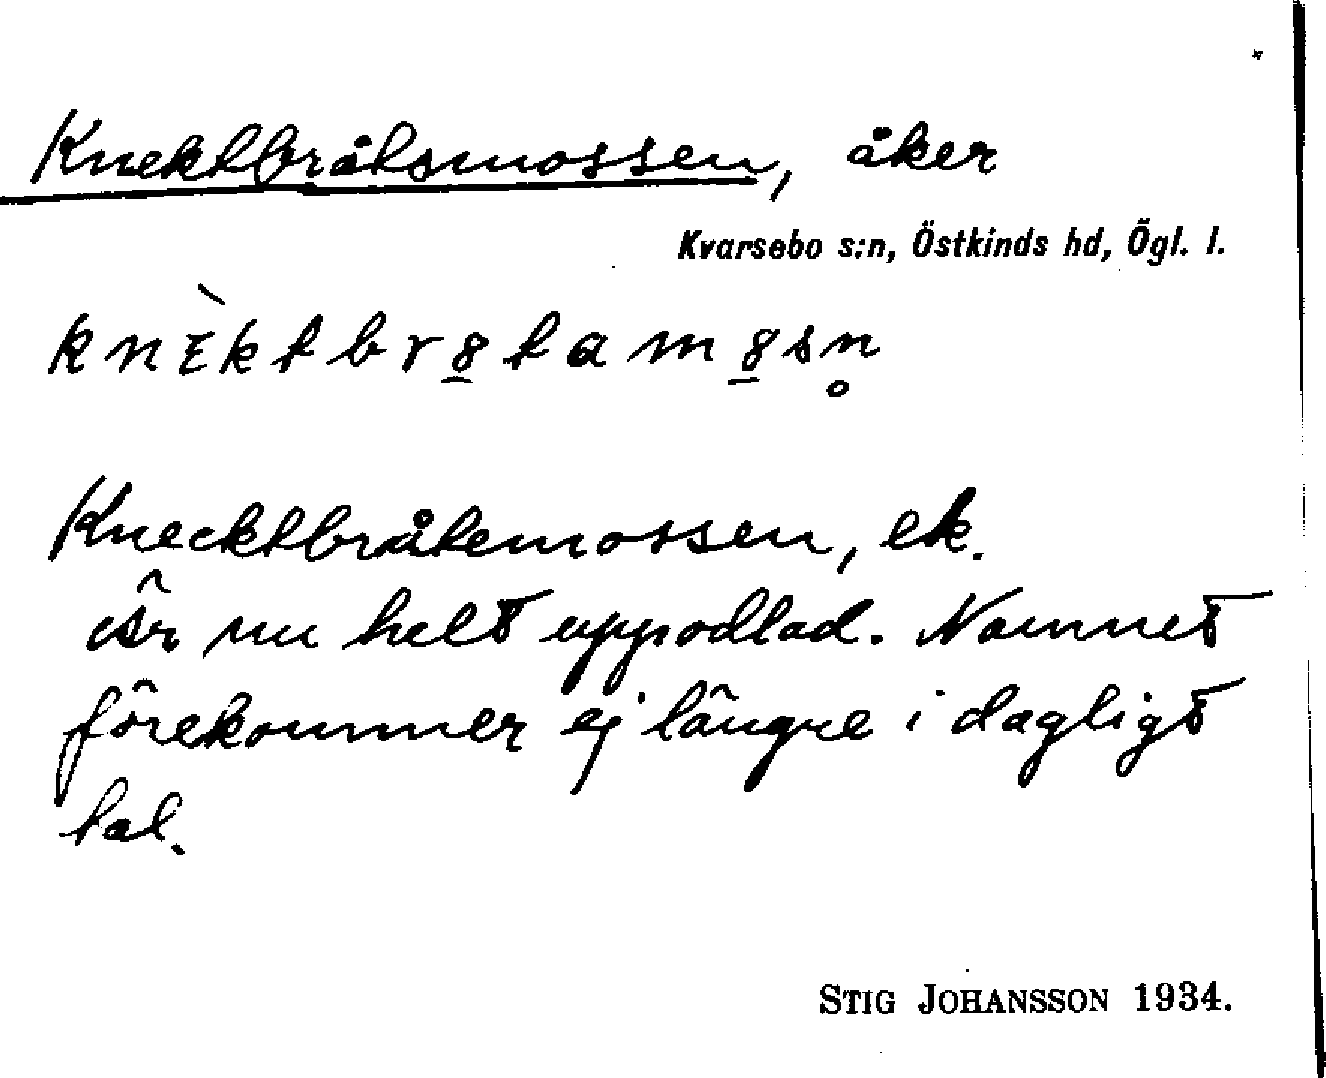 Knektbråtsmossen, åker
Kvarsebo s:n, Östkinds hd, Ögl. l.
knὲktbr8tam8sn̥
Knecktbråtemossen, ek.
Är nu helt uppodlad. Namnet
förekommer ej längre i dagligt
tal.
STIG JOHANSSON 1934.